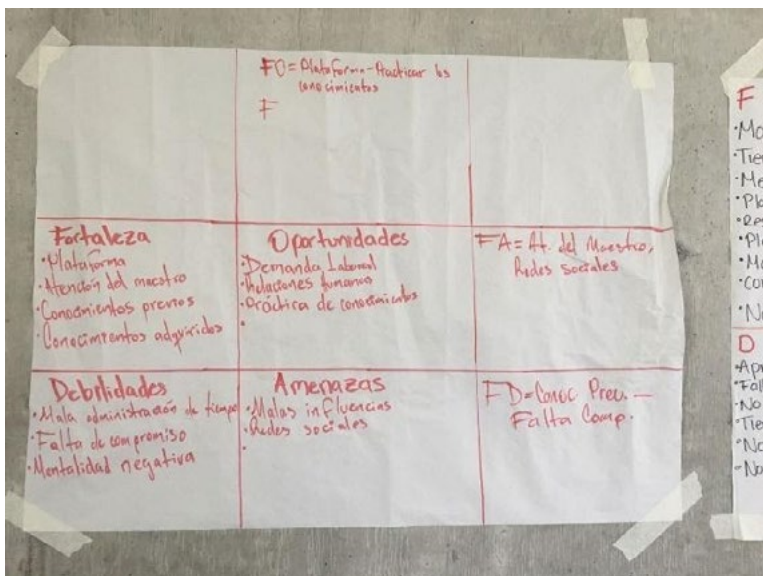 FO = Plataforma - Practicar los
conocimientos
F
Fortaleza
• Plataforma
• Atención del maestro
• Conocimientos previos
• Conocimientos adquiridos
Oportunidades
• Demanda Laboral
• Relaciones humanas
• Práctica de conocimientos
•
FA = At. del Maestro,
Redes sociales
Debilidades
• Mala administración de tiempo
• Falta de compromiso
• Mentalidad negativa
Amenazas
• Malas influencias
• Redes sociales
•
FD = Conoc Prev. —
Falta Comp.
F
D